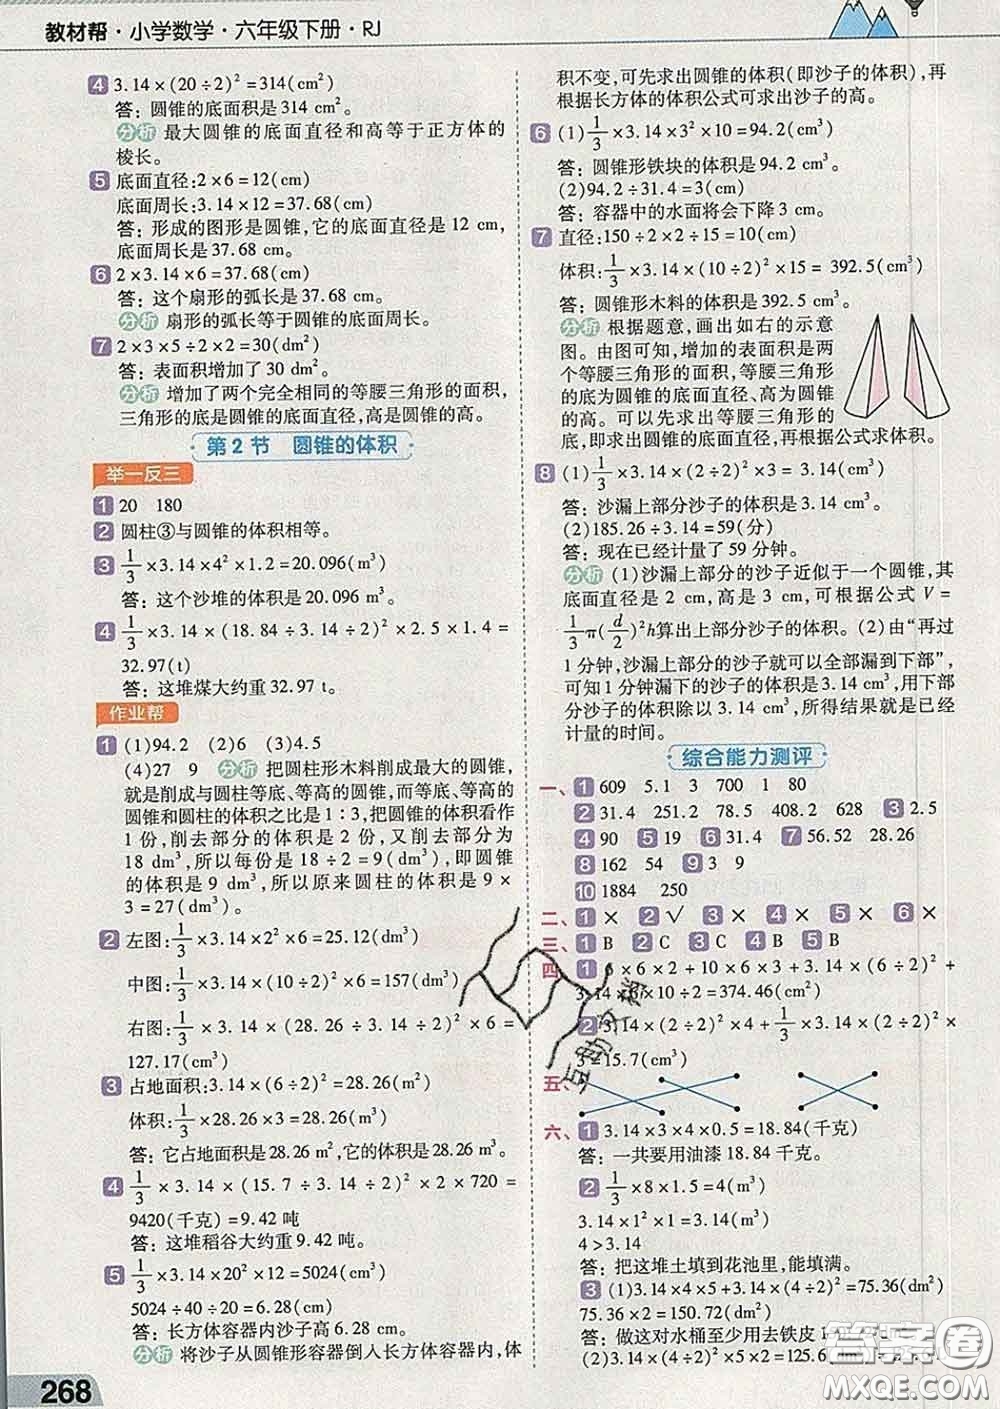 教材帮·小学数学·六年级下册·RJ
4 3.14×(20÷2)²=314(cm²)
答：圆锥的底面积是314 cm²。
分析 最大圆锥的底面直径和高等于正方体的
棱长。
5 底面直径:2×6=12(cm)
底面周长:3.14×12=37.68(cm)
答：形成的图形是圆锥,它的底面直径是12 cm,
底面周长是37.68 cm。
6 2×3.14×6=37.68(cm)
答：这个扇形的弧长是37.68 cm。
分析 扇形的弧长等于圆锥的底面周长。
7 2×3×5÷2×2=30(dm²)
答：表面积增加了30 dm²。
分析 增加了两个完全相同的等腰三角形的面积,
三角形的底是圆锥的底面直径,高是圆锥的高。
第2节 圆锥的体积
举一反三
1 20 180
2 圆柱③与圆锥的体积相等。
3 1/3×3.14×4²×1.2=20.096(m³)
答：这个沙堆的体积是20.096 m³。
4 1/3×3.14×(18.84÷3.14÷2)²×2.5×1.4=
32.97(t)
答：这堆煤大约重32.97 t。
作业帮
1 (1)94.2 (2)6 (3)4.5
(4)27 9 分析 把圆柱形木料削成最大的圆锥,
就是削成与圆柱等底、等高的圆锥,而等底、等高的
圆锥和圆柱的体积之比是1∶3,把圆锥的体积看作
1份,削去部分的体积是2份,又削去部分为
18 dm³,所以每份是18÷2=9(dm³),即圆锥
的体积是9 dm³,所以原来圆柱的体积是9×
3=27(dm³)。
2 左图:1/3×3.14×2²×6=25.12(dm³)
中图:1/3×3.14×(10÷2)²×6=157(dm³)
右图:1/3×3.14×(28.26÷3.14÷2)²×6=
127.17(cm³)
3 占地面积:3.14×(6÷2)²=28.26(m²)
体积:1/3×28.26×3=28.26(m³)
答：它占地面积28.26 m²,它的体积是28.26 m³。
4 1/3×3.14×(15.7÷3.14÷2)²×2×720=
9420(千克)=9.42吨
答：这堆稻谷大约重9.42吨。
5 1/3×3.14×20²×12=5024(cm³)
5024÷40÷20=6.28(cm)
答：长方体容器内沙子高6.28 cm。
分析 将沙子从圆锥形容器倒入长方体容器内,体
268
积不变,可先求出圆锥的体积(即沙子的体积),再
根据长方体的体积公式可求出沙子的高。
6 (1)1/3×3.14×3²×10=94.2(cm³)
答：圆锥形铁块的体积是94.2 cm³。
(2)94.2÷31.4=3(cm)
答：容器中的水面将会下降3 cm。
7 直径:150÷2×2÷15=10(cm)
体积:1/3×3.14×(10÷2)²×15=392.5(cm³)
答：圆锥形木料的体积是392.5 cm³。
分析 根据题意,画出如右的示意
图。由图可知,增加的表面积是两
个等腰三角形的面积,等腰三角形
的底为圆锥的底面直径、高为圆锥
的高。可以先求出等腰三角形的
底,即求出圆锥的底面直径,再根据公式求体积。
8 (1)1/3×3.14×(2÷2)²×3=3.14(cm³)
答：沙漏上部分沙子的体积是3.14 cm³。
(2)185.26÷3.14=59(分)
答：现在已经计量了59分钟。
分析 (1)沙漏上部分的沙子近似于一个圆锥,其
底面直径是2 cm,高是3 cm,可根据公式V=
1/3π(d/2)²h算出上部分沙子的体积。(2)由“再过
1分钟,沙漏上部分的沙子就可以全部漏到下部”,
可知1分钟漏下的沙子的体积是3.14 cm³,用下部
分沙子的体积除以3.14 cm³,所得结果就是已经
计量的时间。
综合能力测评
一、1 609 5.1 3 700 1 80
2 31.4 251.2 78.5 408.2 628 3 2.5
4 90 5 19 6 31.4 7 56.52 28.26
8 162 54 9 3 9
10 1884 250
二、1 × 2 √ 3 × 4 × 5 × 6 ×
三、1 B 2 C 3 C 4 B 5 B
四、1 6×6×2+10×6×3+3.14×(6÷2)²+
3.14×6×10÷2=374.46(cm²)
2 3.14×(2÷2)²×4+1/3×3.14×(2÷2)²×
3=15.7(cm³)
五、
六、1 3.14×3×4×0.5=18.84(千克)
答：一共要用油漆18.84千克。
2 1/3×8×1.5=4(m³)
3.14×1²×1=3.14(m³)
4>3.14
答：把这堆土填到花池里,能填满。
3 (1)3.14×4×5+3.14×(4÷2)²=75.36(dm²)
75.36×2=150.72(dm²)
答：做这对水桶至少用去铁皮1
(2)3.14×(4÷2)²×5×2=125.6
互助文档
答案圈
MXQE.COM